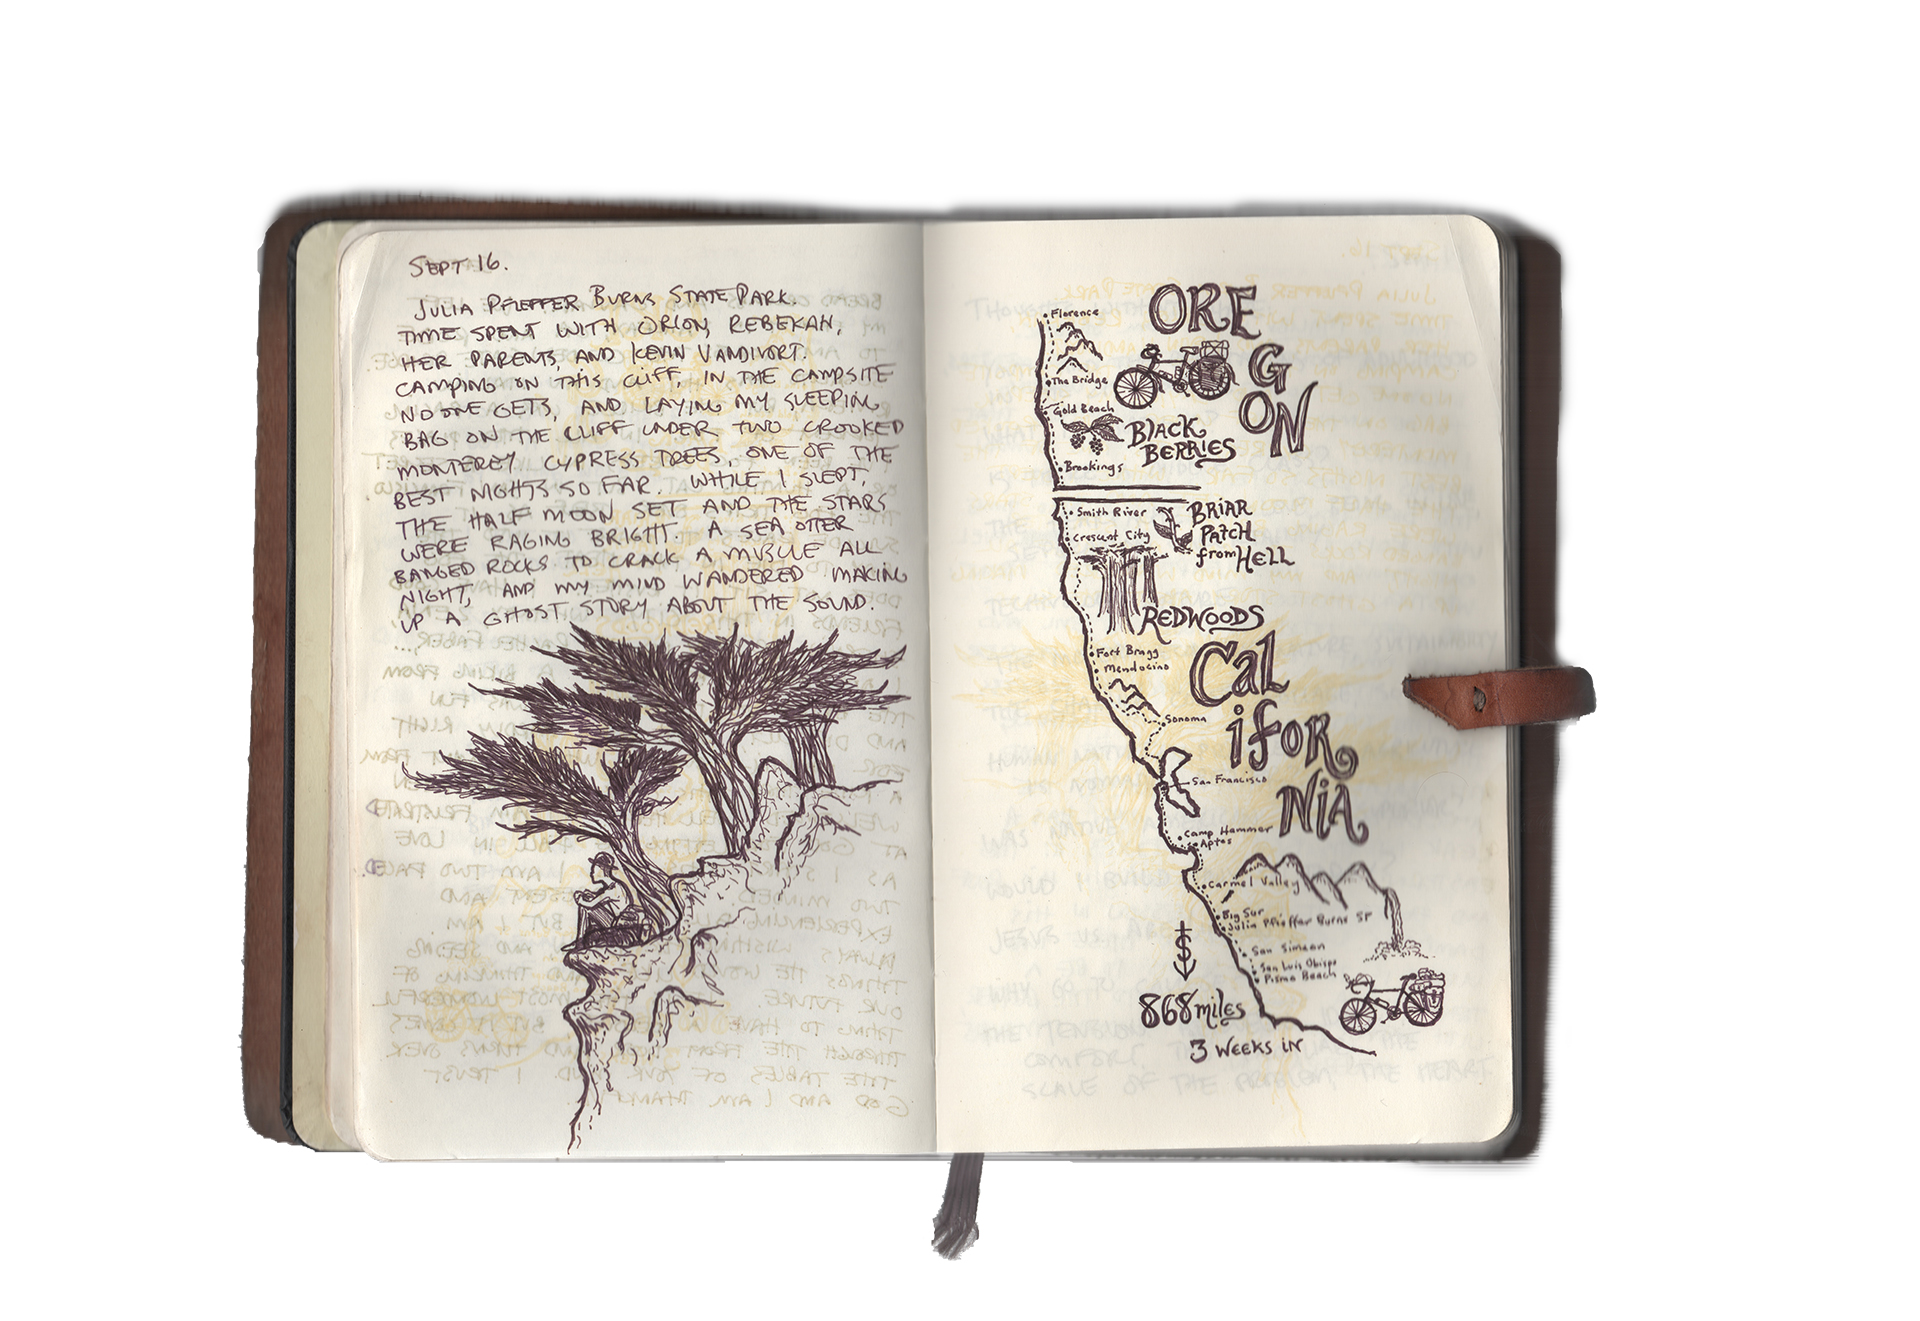 SEPT 16.
JULIA PFIEFFER BURNS STATE PARK.
TIME SPENT WITH ORION, REBEKAH,
HER PARENTS, AND KEVIN VANDIVORT.
CAMPING ON THIS CLIFF, IN THE CAMPSITE
NO ONE GETS, AND LAYING MY SLEEPING
BAG ON THE CLIFF UNDER TWO CROOKED
MONTEREY CYPRESS TREES, ONE OF THE
BEST NIGHTS SO FAR. WHILE I SLEPT,
THE HALF MOON SET AND THE STARS
WERE RAGING BRIGHT. A SEA OTTER
BANGED ROCKS TO CRACK A MUSCLE ALL
NIGHT, AND MY MIND WANDERED MAKING
UP A GHOST STORY ABOUT THE SOUND.
ORE
G
ON
Florence
The Bridge
Gold Beach
BLACK
BERRIES
Brookings
Smith River
BRIAR
PATCH
from HELL
Crescent City
REDWOODS
Fort Bragg
Mendocino
Cal
ifor
NiA
Sonoma
San Francisco
Camp Hammer
Aptos
Carmel Valley
Big Sur
Julia Pfieffer Burns SP
San Simeon
San Luis Obispo
Pismo Beach
868 miles
3 WEEKS IN